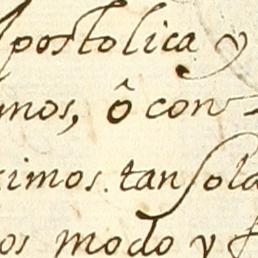 Apostolica y
mos, ô con
simos. tan sola
os modo y